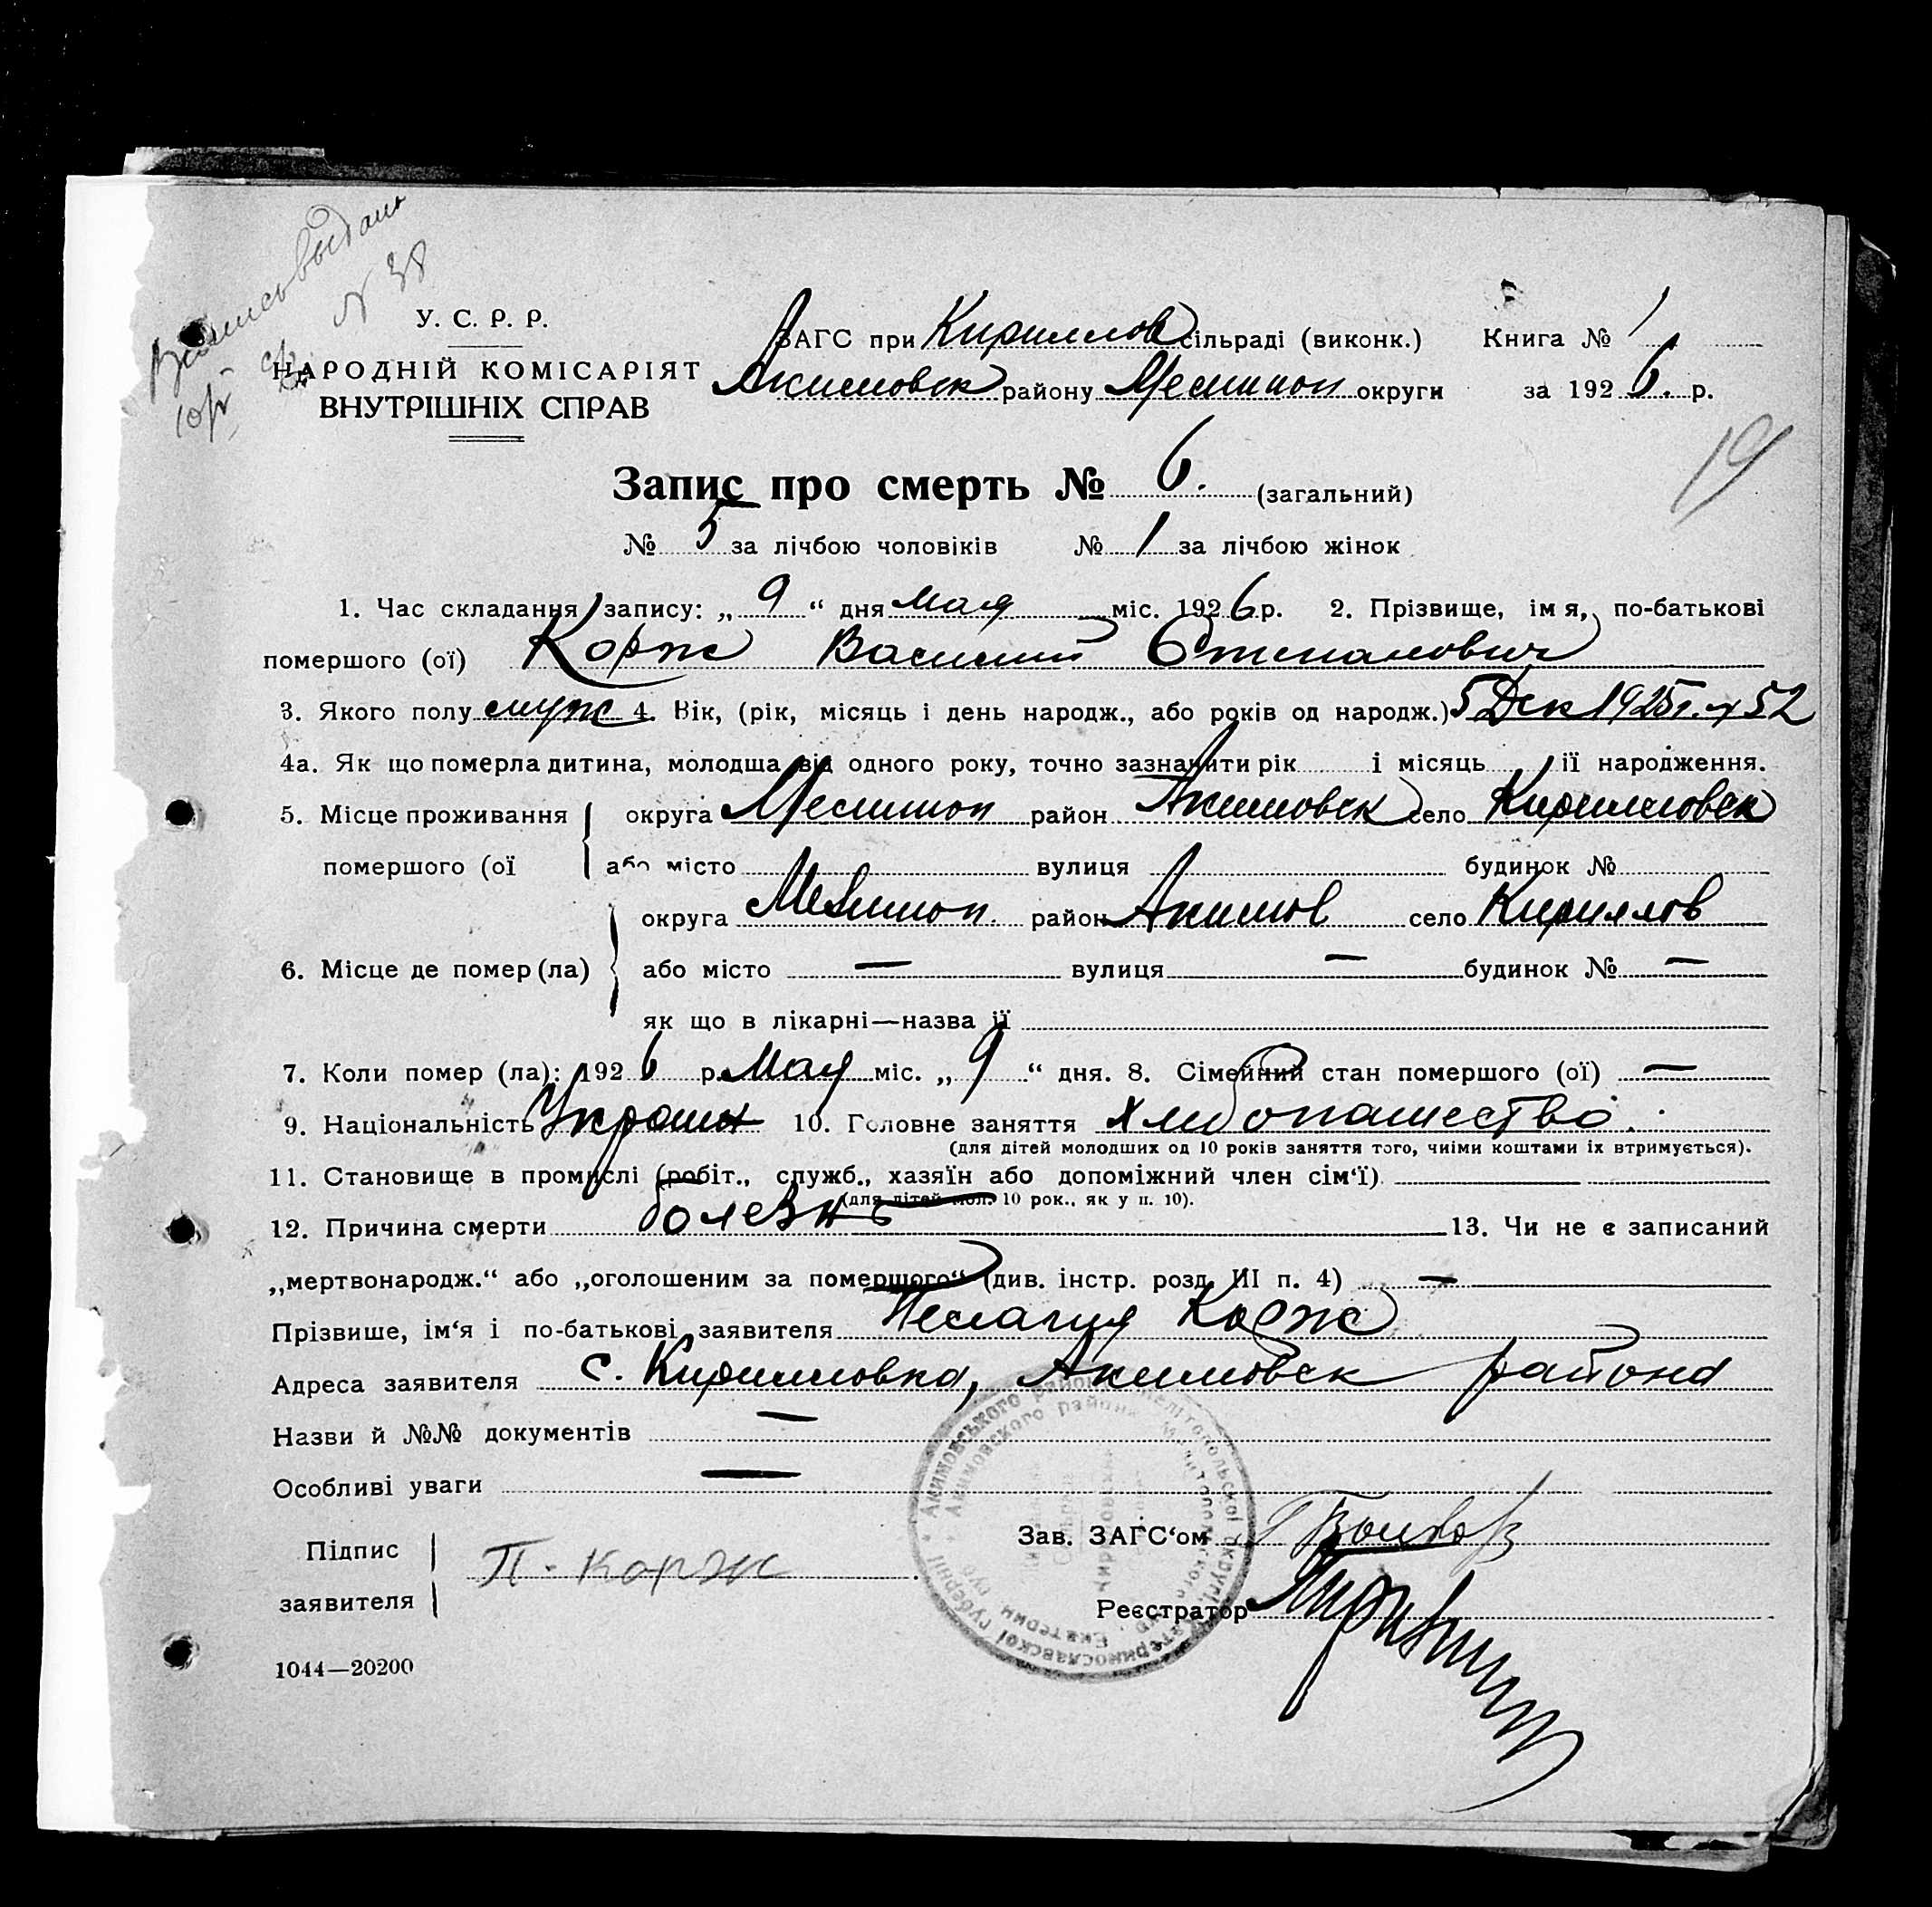 N 38
У. С. Р. Р.
НАРОДНІЙ КОМІСАРІЯТ
ВНУТРІШНІХ СПРАВ
ЗАГС при Кириллов сільраді (виконк.) Книга № 1
Акимовск району Мелитоп округи за 1926 р.
19
Запис про смерть № 6. (загальний)
№ 5 за лічбою чоловіків № 1 за лічбою жінок
1. Час складання запису: „ 9 “ дня мая міс. 1926 р. 2. Прізвище, імя, по-батькові
помершого (ої) Корж Василий Степанович
3. Якого полу муж 4. Вік, (рік, місяць і день народж., або років од народж.) 5 Дек 1925 г.
4а. Як що померла дитина, молодша від одного року, точно зазначити рік і місяць її народження.
5. Місце проживання округа Мелитоп район Акимовск село Кирилловск
помершого (ої або місто вулиця будинок №
округа Мелитоп. район Акимов село Кириллов
6. Місце де помер (ла) або місто — вулиця — будинок № —
як що в лікарні—назва її
7. Коли помер (ла): 1926 р. Мая міс. „ 9 “ дня. 8. Сімейний стан помершого (ої) —
9. Національність Украин 10. Головне заняття хлебопашество.
(для дітей молодших од 10 років заняття того, чиїми коштами їх втримується).
11. Становище в промислі (робіт., служб., хазяїн або допоміжний член сім‘ї)
(для дітей мол. 10 рок., як у п. 10).
12. Причина смерти болезнь 13. Чи не є записаний
„мертвонародж.“ або „оголошеним за помершого“ (див. інстр. розд. III п. 4) —
Прізвише, ім‘я і по-батькові заявителя Пелагия Корж
Адреса заявителя с. Кирилловка, Акимовск района
Назви й №№ документів —
Особливі уваги —
Зав. ЗАГС‘ом
Підпис
заявителя П. Корж
Реєстратор
1044—20200